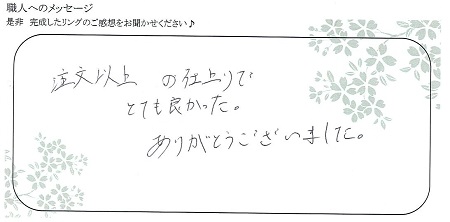 職人へのメッセージ
是非 完成したリングのご感想をお聞かせください♪
注文以上 の仕上りで
とても良かった。
ありがとうございました。